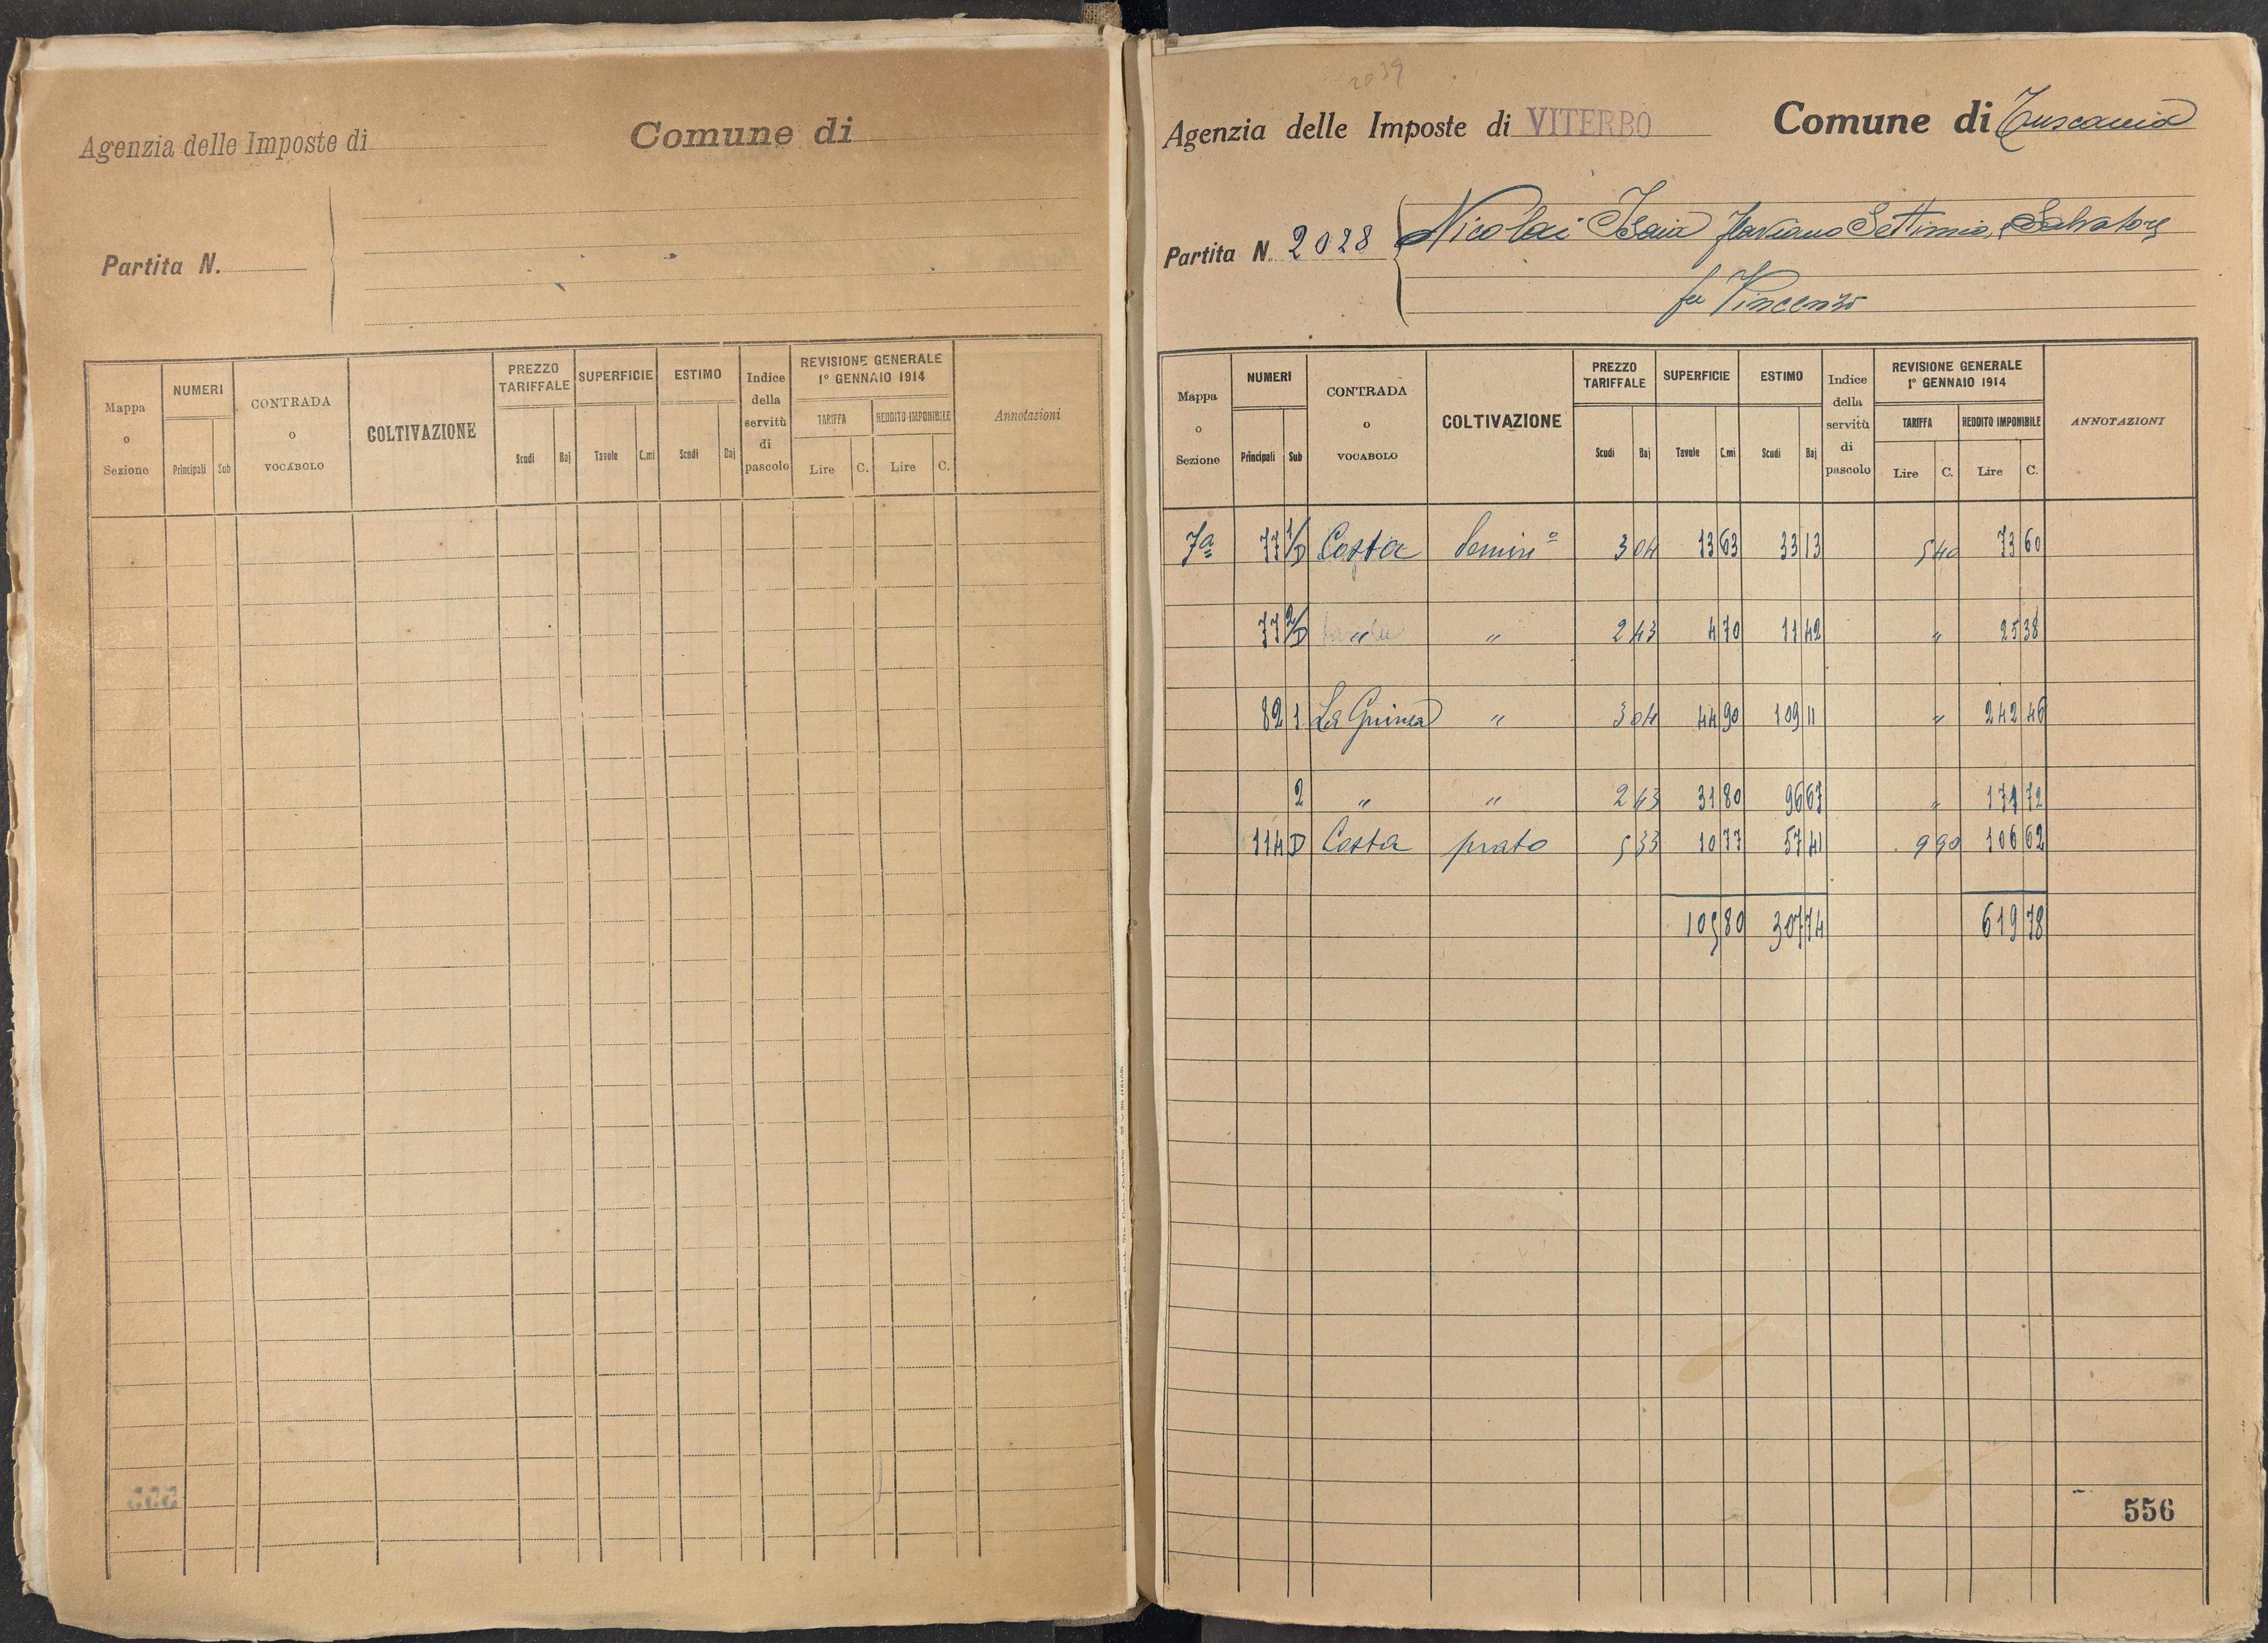 Agenzia delle Imposte di
Comune di
Partita N.
Mappa o Sezione
NUMERI
Principali
Sub
CONTRADA o VOCABOLO
COLTIVAZIONE
PREZZO TARIFFALE
Scudi
Baj
SUPERFICIE
Tavole
C.mi
ESTIMO
Scudi
Baj
Indice della servitù di pascolo
REVISIONE GENERALE 1° GENNAIO 1914
TARIFFA
Lire
C.
REDDITO IMPONIBILE
Lire
C.
Annotazioni
2039
Agenzia delle Imposte di VITERBO
Comune di Tuscania
Partita N. 2028
Nicolai Isaia Flaviano Settimio, Salvatore
fu Vincenzo
Mappa o Sezione
NUMERI
Principali
Sub
CONTRADA o VOCABOLO
COLTIVAZIONE
PREZZO TARIFFALE
Scudi
Baj
SUPERFICIE
Tavole
C.mi
ESTIMO
Scudi
Baj
Indice della servitù di pascolo
REVISIONE GENERALE 1° GENNAIO 1914
TARIFFA
Lire
C.
REDDITO IMPONIBILE
Lire
C.
ANNOTAZIONI
7a 77 1/D Costa Semin° 3 04 13 63 33 13 5 40 73 60
77 2/D " " 2 43 4 70 11 42 " 25 38
82 1 La Guinea " 3 04 44 90 109 11 " 242 46
2 " " 2 43 31 80 96 67 " 171 72
114 D Costa prato 5 33 10 77 57 41 9 90 106 62
105 80 307 74 619 78
556